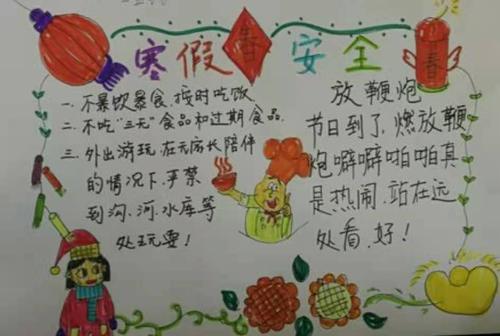 寒假春安全
春
一、不暴饮暴食,按时吃饭
二、不吃“三无”食品和过期食品.
三、外出游玩,在无家长陪伴
的情况下,严禁
到沟、河、水库等
处玩耍!
放鞭炮
节日到了,燃放鞭
炮噼噼啪啪真
是热闹,站在远
处看,好!